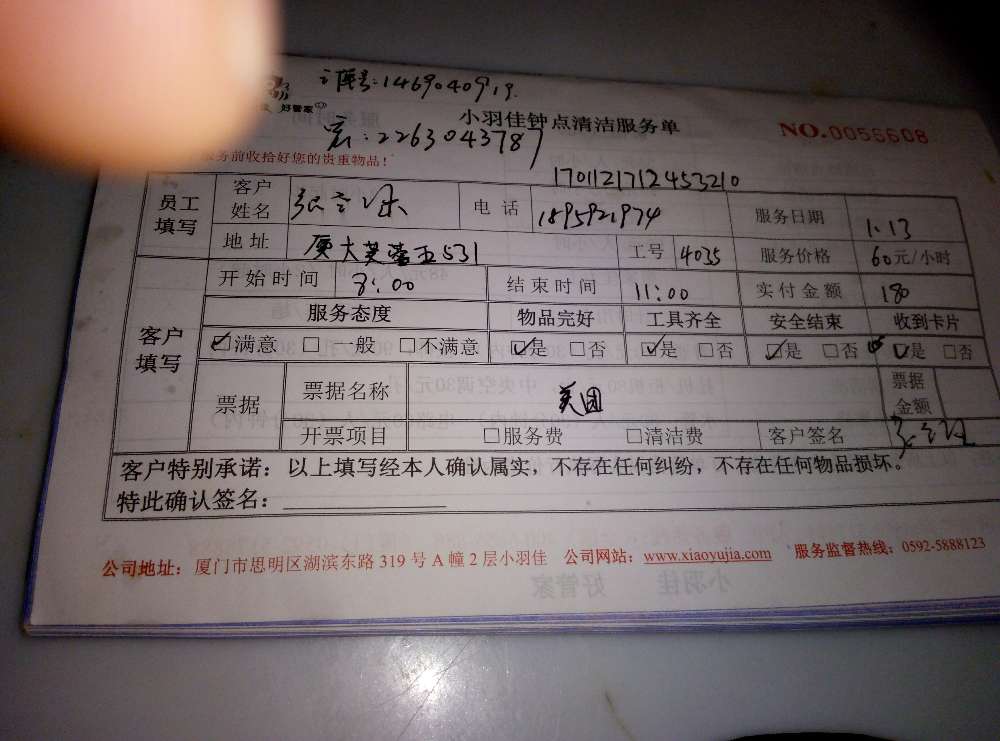 :1469040919.
好管家
小羽佳钟点清洁服务单
NO.0055608
:2263043787
务前收拾好您的贵重物品!
1701121712453210
员工填写
客户姓名 张
电话 1895921974
服务日期 1.13
地址 厦大芙蓉五531
工号 4035
服务价格 60元/小时
客户填写
开始时间 8:00
结束时间 11:00
实付金额 180
服务态度 物品完好 工具齐全 安全结束 收到卡片
☑满意 □一般 □不满意 ☑是 □否 ☑是 □否 ☑是 □否 ☑是 □否
票据
票据名称 美团
票据金额
开票项目 □服务费 □清洁费 客户签名
客户特别承诺:以上填写经本人确认属实,不存在任何纠纷,不存在任何物品损坏。
特此确认签名:
公司地址:厦门市思明区湖滨东路 319 号 A 幢 2 层小羽佳 公司网站:www.xiaoyujia.com 服务监督热线:0592-5888123